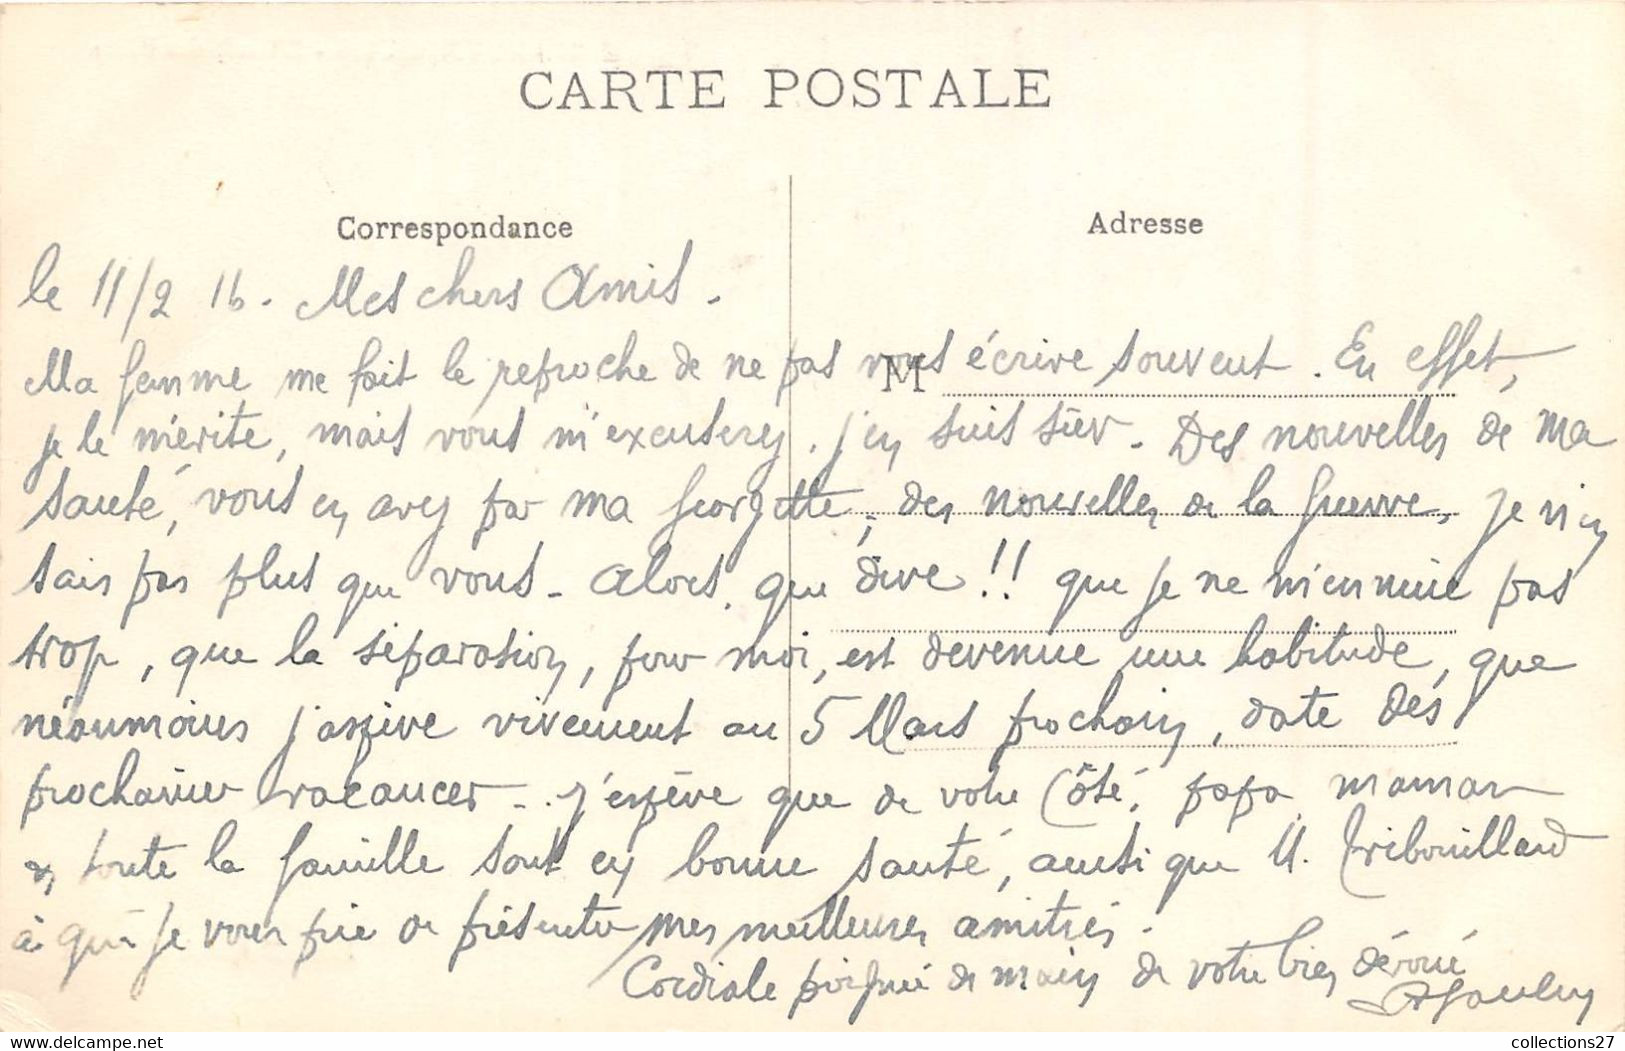 CARTE POSTALE
Correspondance
Adresse
le 11/2 16. Mes chers Amis.
M
Ma femme me fait le reproche de ne pas vous écrire souvent. En effet,
je le mérite, mais vous m'excuserez. j'en suis sûr. Des nouvelles de ma
santé, vous en avez par ma Georgette, des nouvelles de la guerre, je n'en
sais pas plus que vous. Alors, que dire!! que je ne m'ennuie pas
trop, que la séparation, pour moi, est devenue une habitude, que
néanmoins j'aspire vivement au 5 Mars prochain, date des
prochaines vacances. j'espère que de votre côté, papa, maman
& toute la famille sont en bonne santé, ainsi que M. Tribouillard
à qui je vous prie de présenter mes meilleures amitiés.
Cordiale poignée de main de votre bien dévoué
collections27